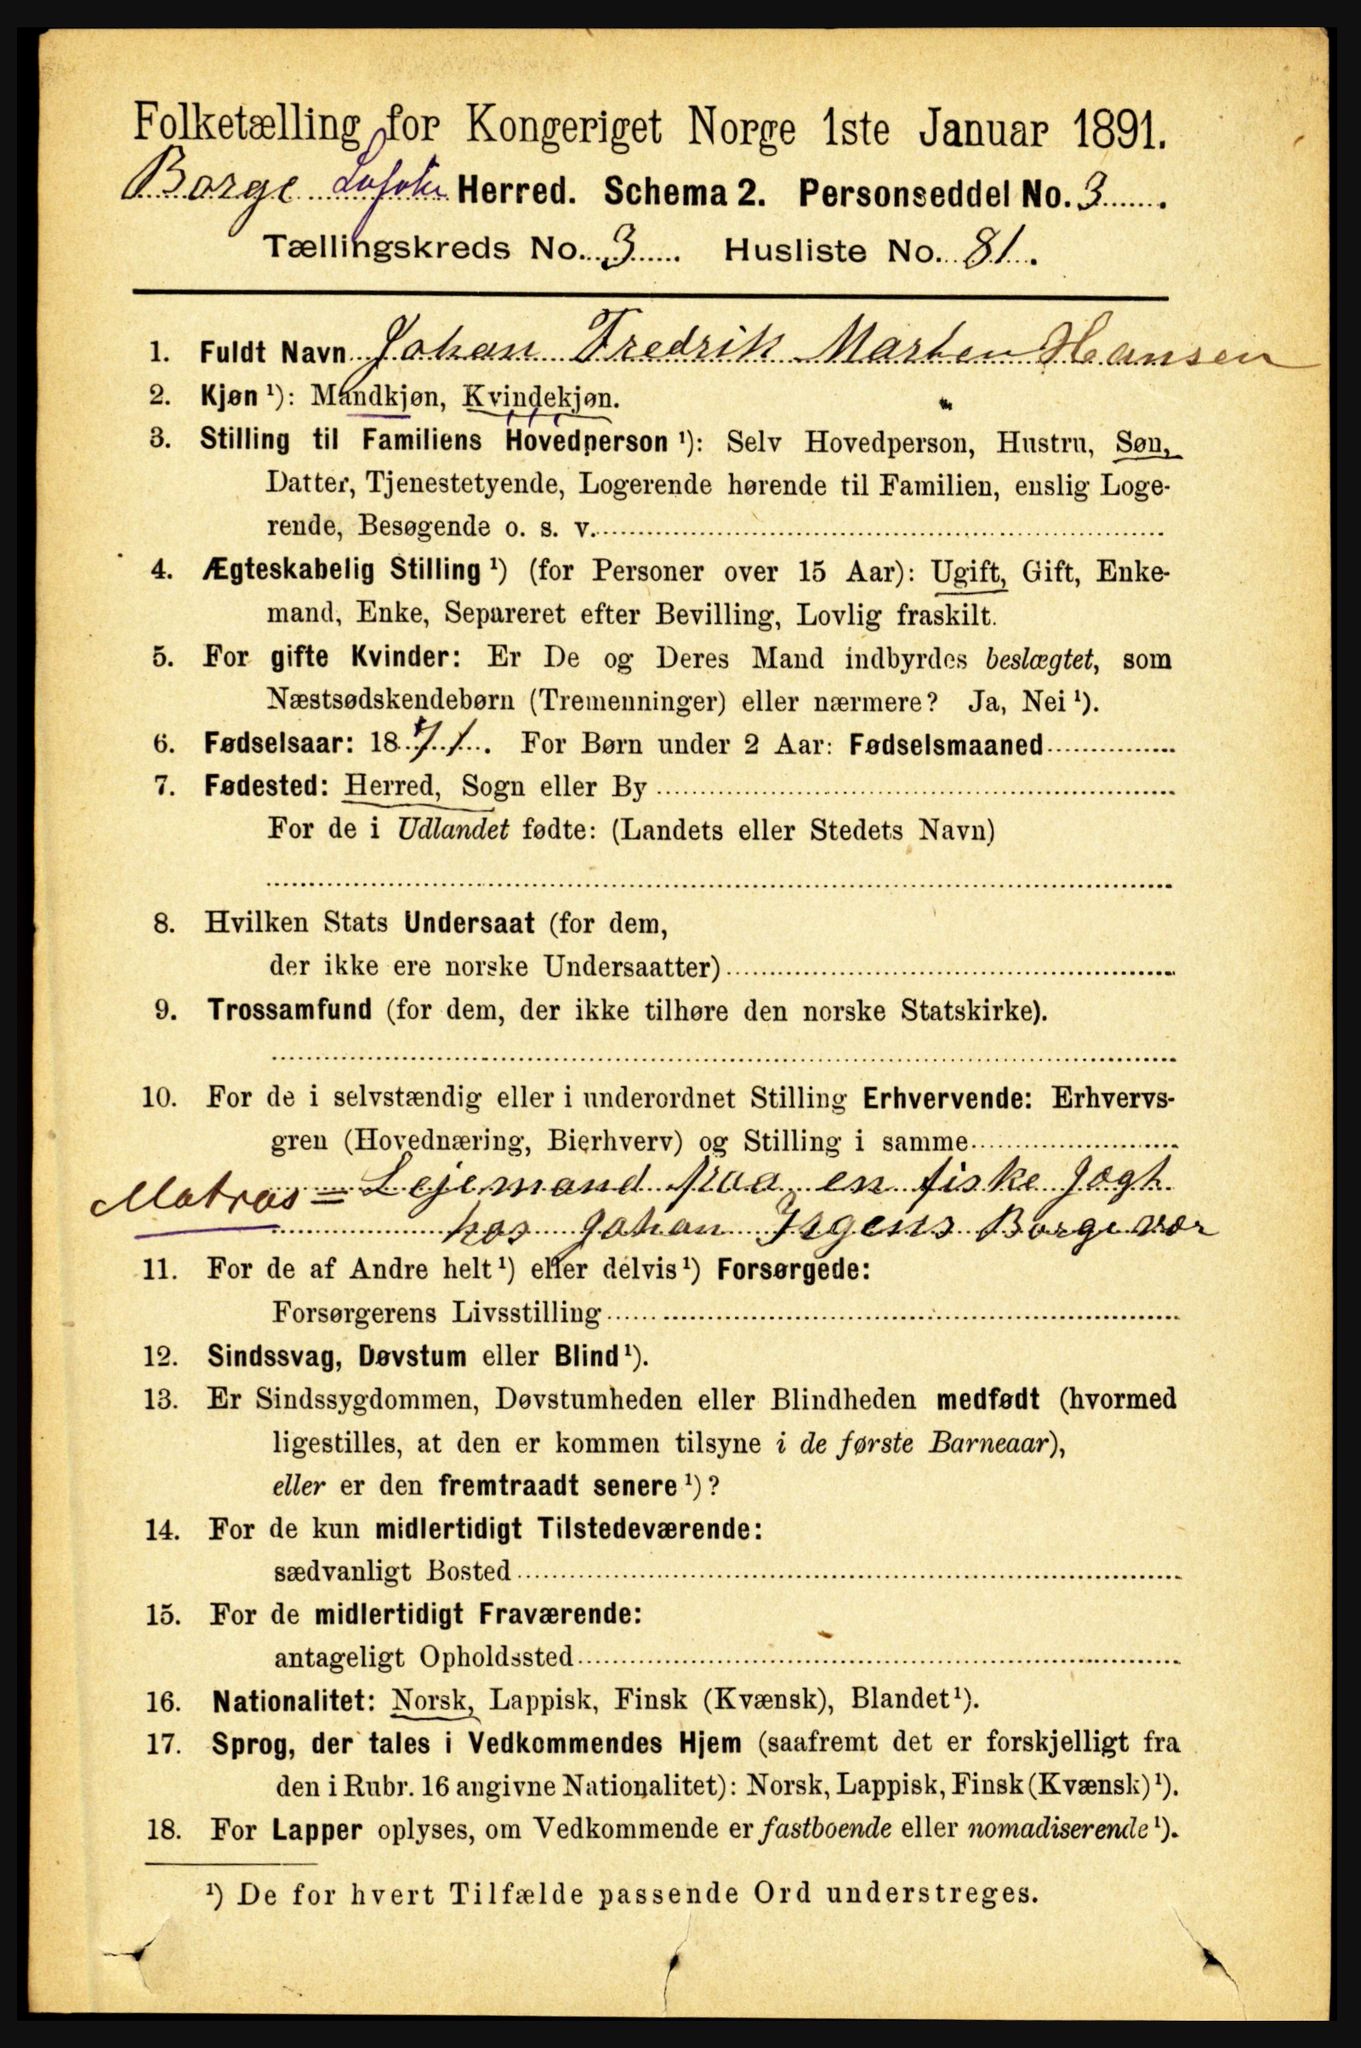 Folketælling for Kongeriget Norge 1ste Januar 1891.
Borge Lofoten Herred. Schema 2. Personseddel No. 3
Tællingskreds No. 3 Husliste No. 81.
1. Fuldt Navn Johan Fredrik Marten Hansen
2. Kjøn ¹): Mandkjøn, Kvindekjøn.
3. Stilling til Familiens Hovedperson ¹): Selv Hovedperson, Hustru, Søn,
Datter, Tjenestetyende, Logerende hørende til Familien, enslig Loge-
rende, Besøgende o. s. v.
4. Ægteskabelig Stilling ¹) (for Personer over 15 Aar): Ugift, Gift, Enke-
mand, Enke, Separeret efter Bevilling, Lovlig fraskilt.
5. For gifte Kvinder: Er De og Deres Mand indbyrdes beslægtet, som
Næstsødskendebørn (Tremenninger) eller nærmere? Ja, Nei ¹).
6. Fødselsaar: 1871. For Børn under 2 Aar: Fødselsmaaned
7. Fødested: Herred, Sogn eller By
For de i Udlandet fødte: (Landets eller Stedets Navn)
8. Hvilken Stats Undersaat (for dem,
der ikke ere norske Undersaatter)
9. Trossamfund (for dem, der ikke tilhøre den norske Statskirke).
10. For de i selvstændig eller i underordnet Stilling Erhvervende: Erhvervs-
gren (Hovednæring, Bierhverv) og Stilling i samme
Matros = Lejemand paa en fiske Jagt
hos Johan Irgens Borgevær
11. For de af Andre helt ¹) eller delvis ¹) Forsørgede:
Forsørgerens Livsstilling
12. Sindssvag, Døvstum eller Blind ¹).
13. Er Sindssygdommen, Døvstumheden eller Blindheden medfødt (hvormed
ligestilles, at den er kommen tilsyne i de første Barneaar),
eller er den fremtraadt senere ¹)?
14. For de kun midlertidigt Tilstedeværende:
sædvanligt Bosted
15. For de midlertidigt Fraværende:
antageligt Opholdssted
16. Nationalitet: Norsk, Lappisk, Finsk (Kvænsk), Blandet ¹).
17. Sprog, der tales i Vedkommendes Hjem (saafremt det er forskjelligt fra
den i Rubr. 16 angivne Nationalitet): Norsk, Lappisk, Finsk (Kvænsk) ¹).
18. For Lapper oplyses, om Vedkommende er fastboende eller nomadiserende ¹).
¹) De for hvert Tilfælde passende Ord understreges.